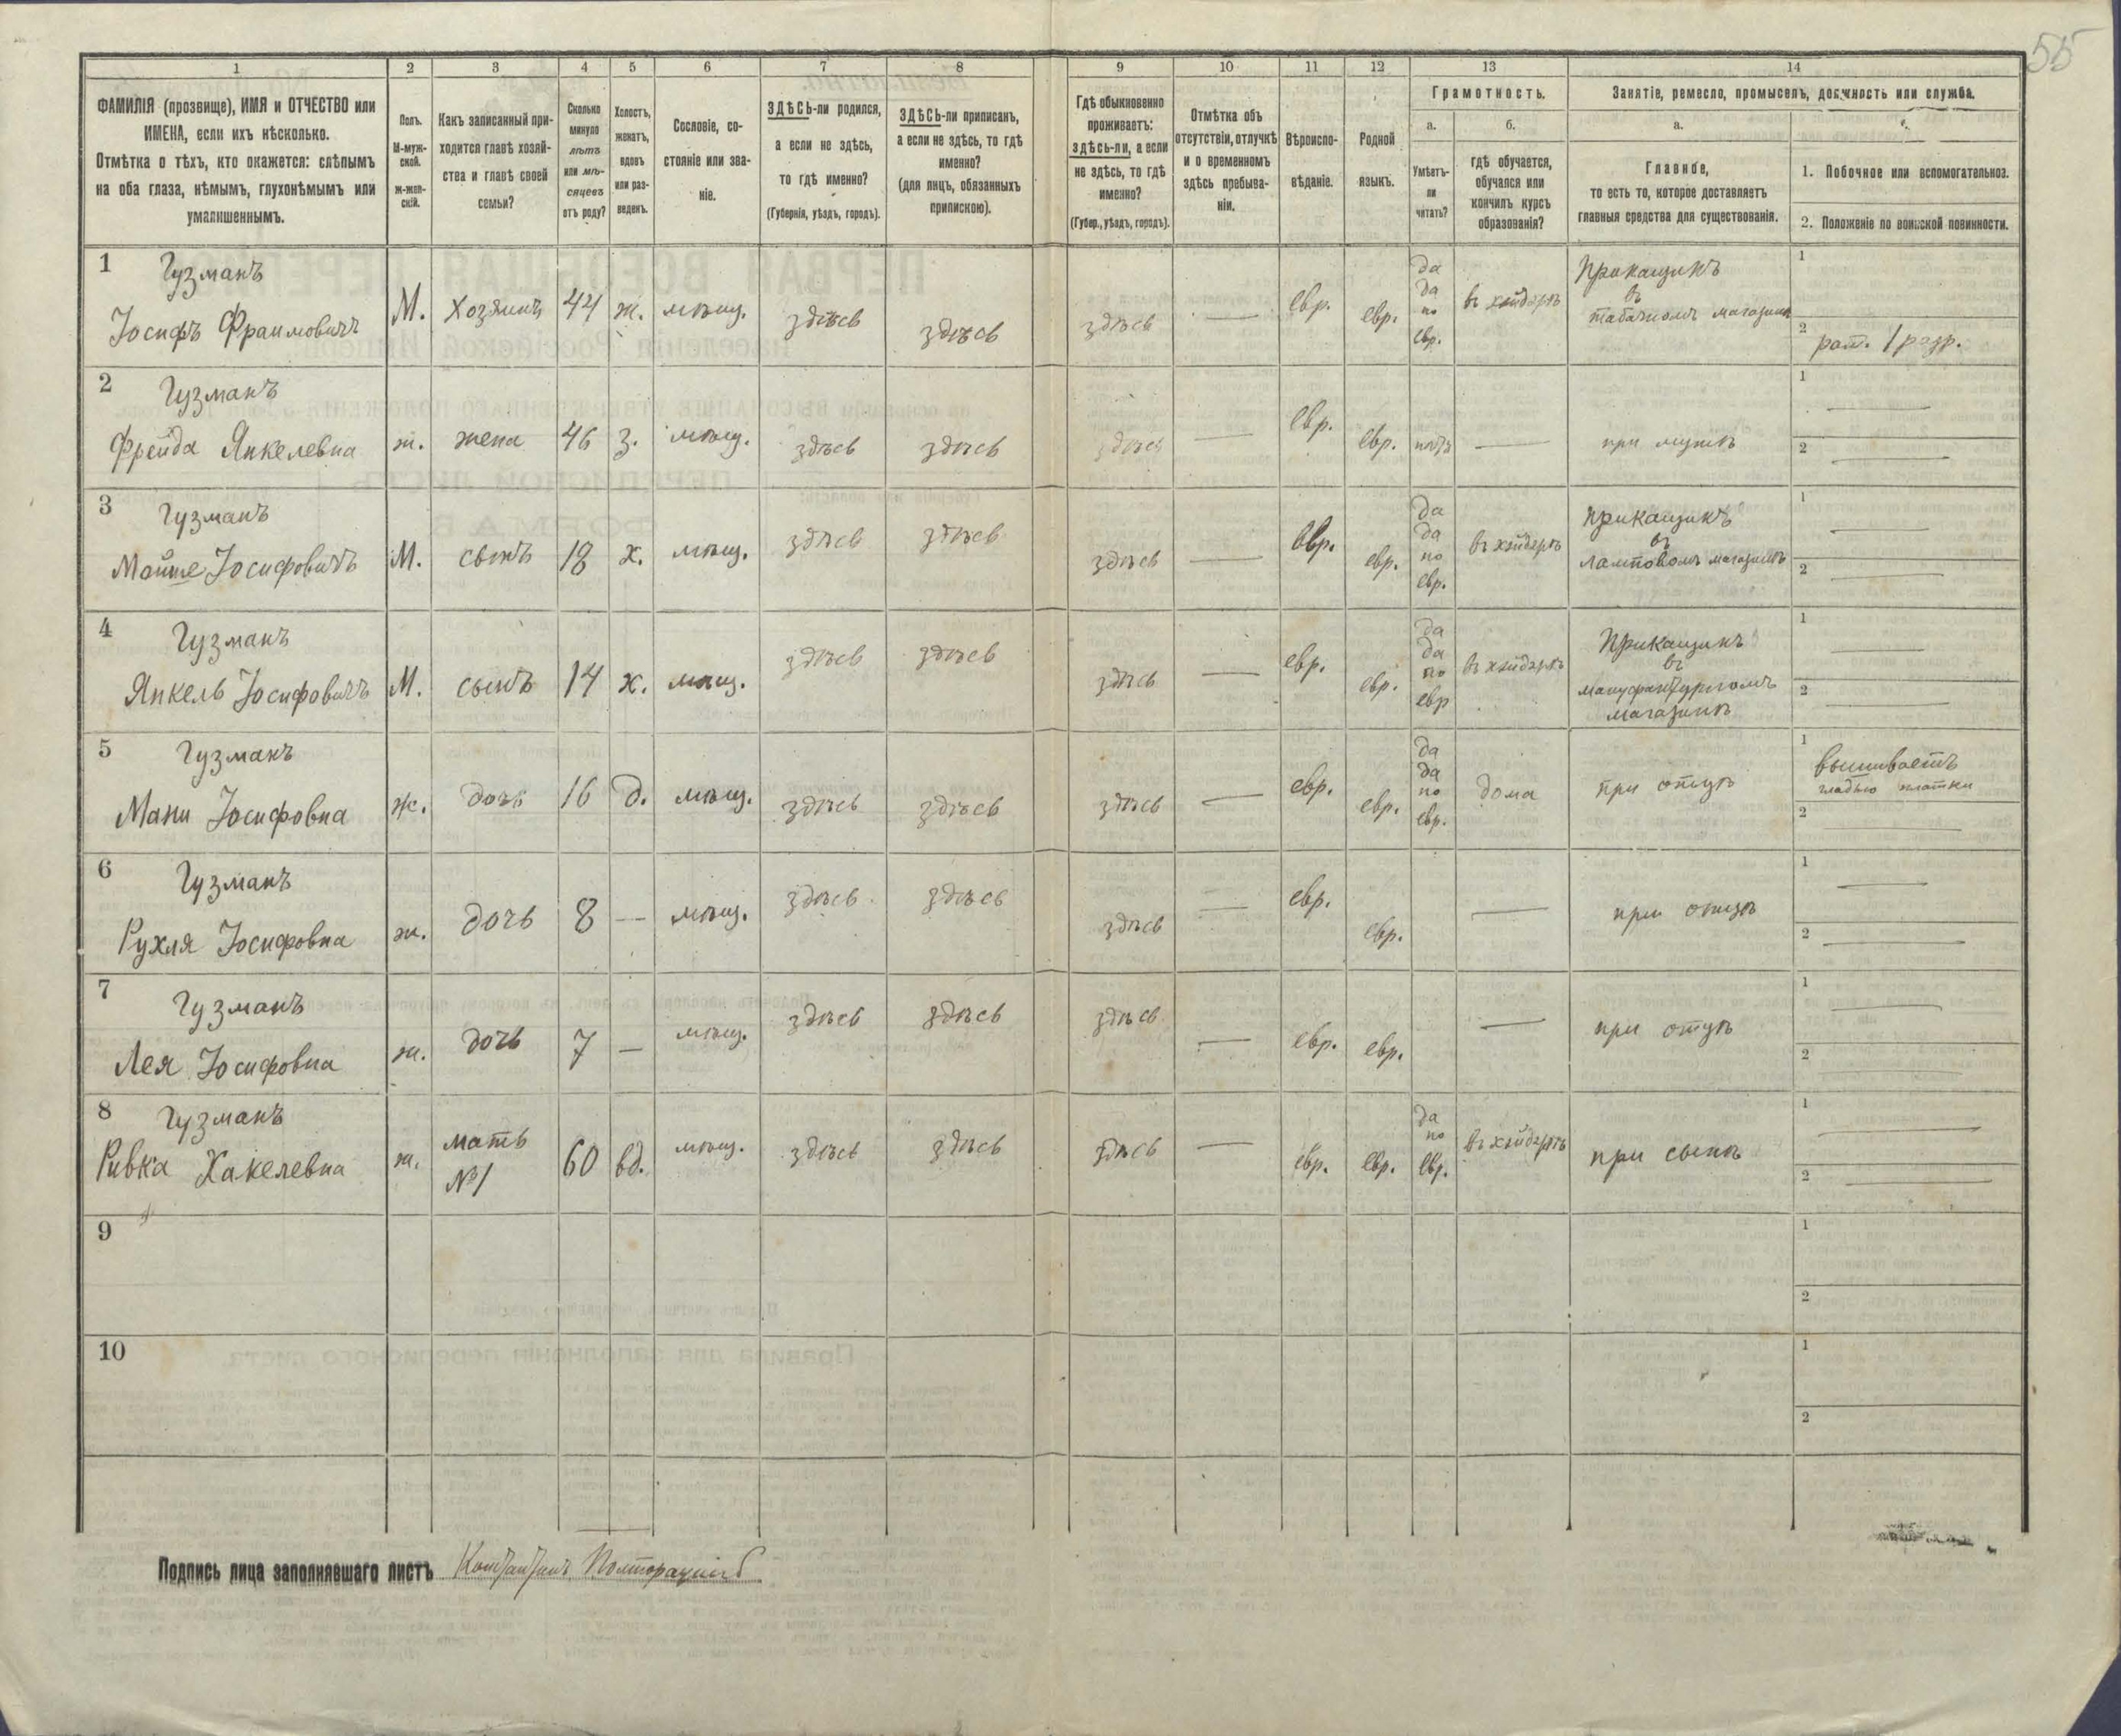 55
1 2 3 4 5 6 7 8 9 10 11 12 13 14
ФАМИЛІЯ (прозвище), ИМЯ и ОТЧЕСТВО или
ИМЕНА, если ихъ нѣсколько.
Отмѣтка о тѣхъ, кто окажется: слѣпымъ
на оба глаза, нѣмымъ, глухонѣмымъ или
умалишеннымъ.
Полъ.
М-муж-
ской.
Ж-жен-
скій.
Какъ записанный при-
ходится главѣ хозяй-
ства и главѣ своей
семьи?
Сколько
минуло
лѣтъ
или мѣ-
сяцевъ
отъ роду?
Холостъ,
женатъ,
вдовъ
или раз-
веденъ.
Сословіе, со-
стояніе или зва-
ніе.
ЗДѢСЬ-ли родился,
а если не здѣсь,
то гдѣ именно?
(Губернія, уѣздъ, городъ).
ЗДѢСЬ-ли приписанъ,
а если не здѣсь, то гдѣ
именно?
(для лицъ, обязанныхъ
припискою).
Гдѣ обыкновенно
проживаетъ:
здѣсь-ли, а если
не здѣсь, то гдѣ
именно?
(Губер., уѣздъ, городъ).
Отмѣтка объ
отсутствіи, отлучкѣ
и о временномъ
здѣсь пребыва-
ніи.
Вѣроиспо-
вѣданіе.
Родной
языкъ.
Грамотность.
а.
Умѣетъ-
ли
читать?
б.
гдѣ обучается,
обучался или
кончилъ курсъ
образованія?
Занятіе, ремесло, промыселъ, должность или служба.
а.
Главное,
то есть то, которое доставляетъ
главныя средства для существованія.
1. Побочное или вспомогательное.
2. Положеніе по воинской повинности.
1 Гузманъ
Іосифъ Фраимовичъ М. хозяинъ 44 ж. мѣщ. здѣсь здѣсь здѣсь — евр. евр.
да
да
по
евр.
въ хэйдерѣ
Прикащикъ
въ
табачномъ магазинѣ
1
2 рат. 1 разр.
2 Гузманъ
Фрейда Янкелевна ж. жена 46 з. мѣщ. здѣсь здѣсь здѣсь — евр. евр. нѣтъ — при мужѣ
1 —
2 —
3 Гузманъ
Мойше Іосифовичъ М. сынъ 18 х. мѣщ. здѣсь здѣсь здѣсь — евр. евр.
да
да
по
евр.
въ хэйдерѣ
Прикащикъ
въ
ламповомъ магазинѣ
1 —
2 —
4 Гузманъ
Янкель Іосифовичъ М. сынъ 14 х. мѣщ. здѣсь здѣсь здѣсь — евр. евр.
да
да
по
евр
въ хэйдерѣ
Прикащикъ
въ
мануфактурномъ
магазинѣ
1 —
2 —
5 Гузманъ
Мани Іосифовна ж. дочь 16 д. мѣщ. здѣсь здѣсь здѣсь — евр. евр.
да
да
по
евр.
дома
при отцѣ
1 вышиваетъ
гладью платки
2 —
6 Гузманъ
Рухля Іосифовна ж. дочь 8 — мѣщ. здѣсь здѣсь здѣсь — евр. евр. — при отцѣ
1 —
2 —
7 Гузманъ
Лея Іосифовна ж. дочь 7 — мѣщ. здѣсь здѣсь здѣсь — евр. евр. — при отцѣ
1 —
2 —
8 Гузманъ
Ривка Хакелевна ж. мать
№1
60 вд. мѣщ. здѣсь здѣсь здѣсь — евр. евр.
да
по
евр.
въ хэйдерѣ
при сынѣ
1 —
2 —
9
1
2
10
1
2
Подпись лица заполнявшаго листъ